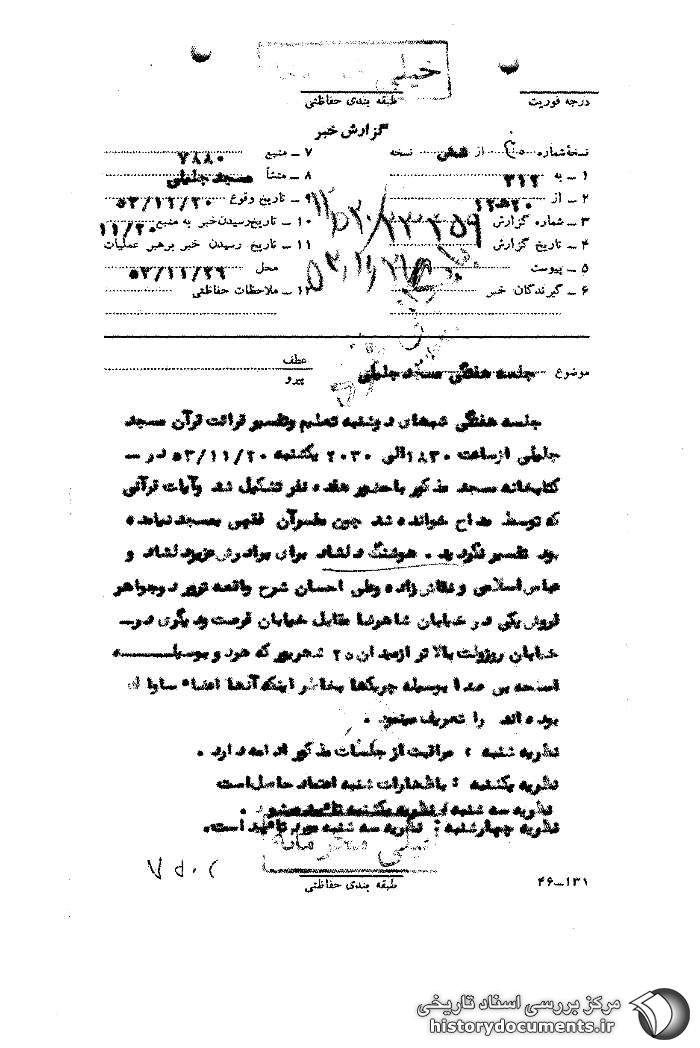 خیلی
طبقه بندی حفاظتی
درجه فوریت
گزارش خبر
نسخهٔ شماره از شش نسخه
۱ ـ به ۳۱۲
۲ ـ از ۱۲ﻫ۲۰
۳ ـ شماره گزارش
۴ ـ تاریخ گزارش
۵ ـ پیوست
۶ ـ گیرندگان خبر
۷ ـ منبع ۷۸۸۰
۸ ـ منشأ مسجد جلیلی
۹ ـ تاریخ وقوع ۵۳/۱۱/۲۰
۱۰ ـ تاریخ رسیدن خبر به منبع ۱۱/۲۰
۱۱ ـ تاریخ رسیدن خبر برهبر عملیات
محل ۵۳/۱۱/۲۹
۱۲ ـ ملاحظات حفاظتی
موضوع جلسه هفتگی مسجد جلیلی
عطف
پیرو
جلسه هفتگی شبهای دوشنبه تعلیم وتفسیر قرائت قرآن مسجد
جلیلی ازساعت ۱۸۳۰ الی ۲۰۳۰ یکشنبه ۵۳/۱۱/۲۰ در ـ
کتابخانه مسجد مذکور باحضور هفده نفر تشکیل شد وآیات قرآنی
که توسط مداح خوانده شد چون مفسرآن فقهی بمسجد نیامده
بود تفسیر نگردید . هوشنگ دلشاد برای برادرش عزیزدلشاد و
عباس اسلامی و نقاش زاده وعلی احسان شرح واقعه ترور دوجواهر
فروش یکی در خیابان شاهرضا مقابل خیابان فرصت ودیگری درـ
خیابان روزولت بالا تر ازمیدان ۲۵ شهریور که هردو بوسیله
اسلحه بی صدا بوسیله چریکها بخاطر اینکه آنها اعضاء ساواک
بوده اند را تعریف مینمود .
نظریه شنبه : مراقبت از جلسات مذکور ادامه دارد .
نظریه یکشنبه : باظهارات شنبه اعتماد حاصل است
نظریه سه شنبه : نظریه یکشنبه تائید میشود .
نظریه چهارشنبه : نظریه سه شنبه مورد تائید است.
خیلی محرمانه
طبقه بندی حفاظتی
۱۳۱ـ۴۶
مرکز بررسی اسناد تاریخی
historydocuments.ir